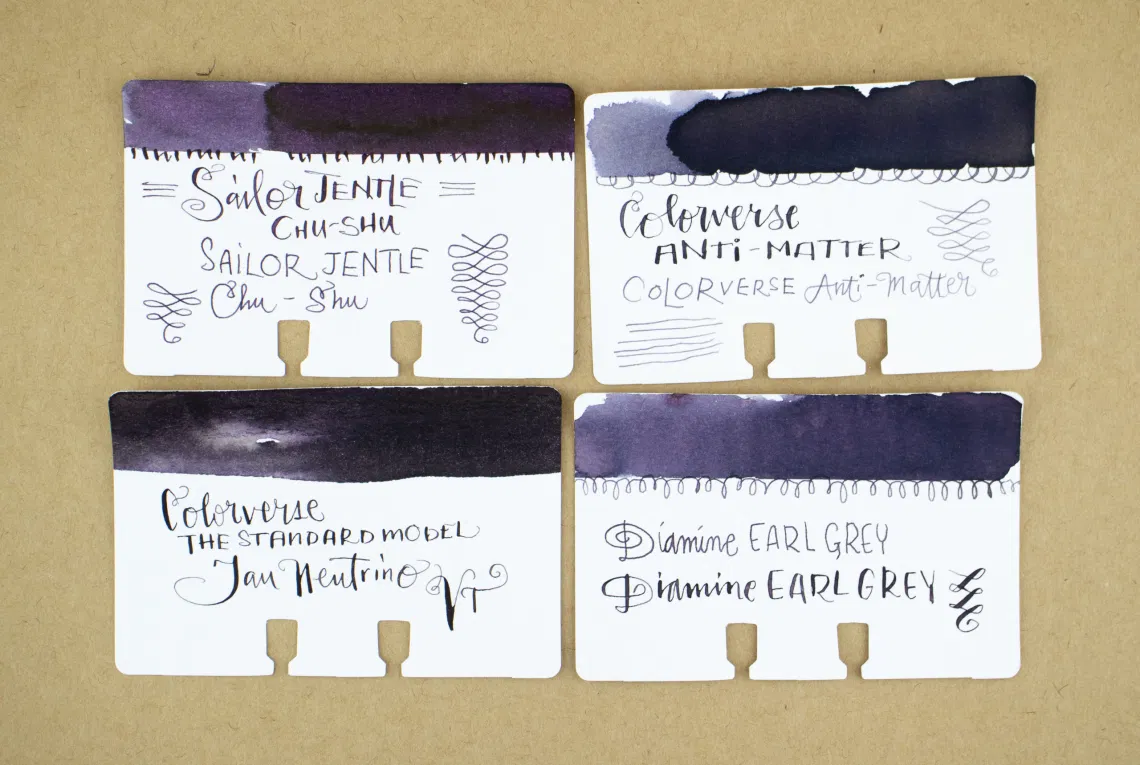 Sailor JENTLE
CHU-SHU
SAILOR JENTLE
Chu-Shu
Colorverse
ANTi-MATTER
COLORVERSE Anti-Matter
Colorverse
THE STANDARD MODEL
Tau Neutrino
VT
Diamine EARL GREY
Diamine EARL GREY